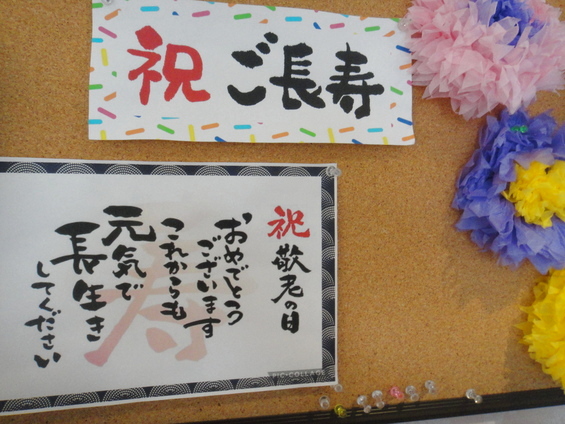 祝 ご長寿
祝 敬老の日
おめでとう
ございます
これからも
元気で
長生き
してください
寿
PIC-COLLAGE